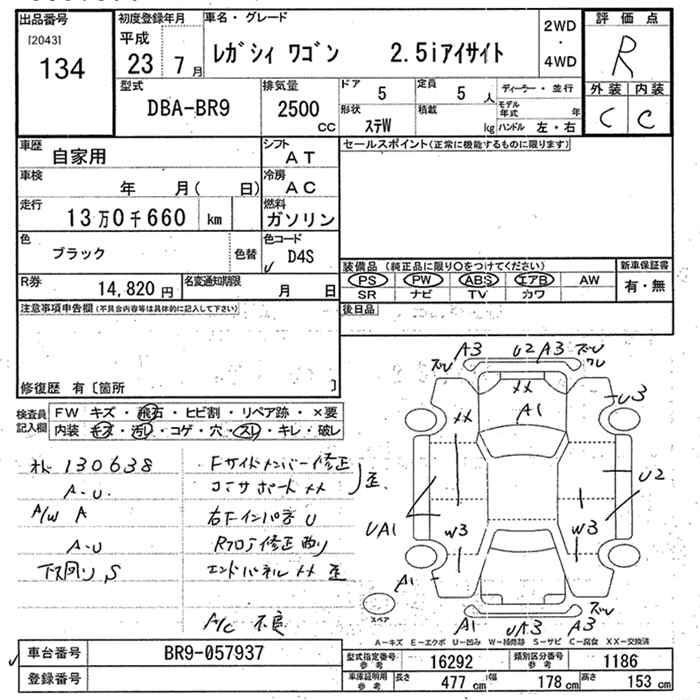 出品番号
[2043]
134
初度登録年月
平成
23 7月
車名・グレード
レガシィ ワゴン 2.5iアイサイト
2WD
・
4WD
評価点
R
外装 内装
C C
型式
DBA-BR9
排気量
2500 cc
ドア 5
形状 ステW
定員 5 人
積載 kg
ディーラー・並行
モデル年式 年
ハンドル 左・右
車歴
自家用
シフト
AT
車検
年 月( 日)
冷房
AC
走行
13万0千660 km
燃料
ガソリン
色
ブラック
色替
色コード
D4S
R券
14,820 円
名変通知期限
月 日
セールスポイント(正常に機能するものに限ります)
装備品 (純正品に限り〇をつけてください)
新車保証書
PS PW ABS エアB AW
SR ナビ TV カワ
有・無
後日品
注意事項申告欄(不具合内容等は具体的に記入して下さい)
修復歴 有〔箇所 〕
検査員記入欄
FW キズ・飛石・ヒビ割・リペア跡・×要
内装・キズ・汚レ・コゲ・穴・スレ・キレ・破レ
130638
A-U
A/W A
A-U
下廻り S
Fサイドメンバー修正
コアサポート XX
歪
右Fインパネ U
Rフロア修正
エンドパネル XX 歪
A/C 不良
A3 U2 A3 ズレ
ズレ
ワレ
XX
A1
U3
XX
U2
UA1
W3
W3
A1
スペア
A1 UA3 A3
ズレ
A-キズ E-エクボ U-凹み W-補修跡 S-サビ C-腐食 XX-交換済
車台番号
BR9-057937
登録番号
型式指定番号 参考
16292
類別区分番号 参考
1186
車庫証明用 参考
長さ 477 cm
幅 178 cm
高さ 153 cm